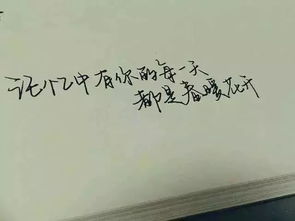 记忆中有你的每一天
都是春暖花开